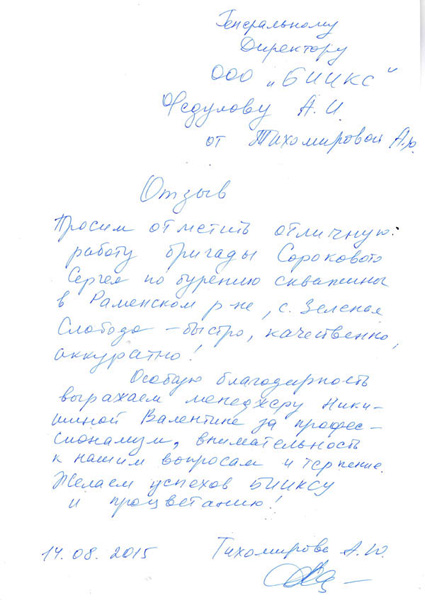 Генеральному
Директору
ООО „БИИКС"
Федулову А.И.
от Тихомировой А.Ю.
Отзыв
Просим отметить отличную
работу бригады Сорокового
Сергея по бурению скважины
в Раменском р-не, с. Зеленая
Слобода - быстро, качественно,
аккуратно!
Особую благодарность
выражаем менеджеру Ники-
шиной Валентине за профес-
сионализм, внимательность
к нашим вопросам и терпение.
Желаем успехов БИИКСу
и процветанию!
14.08.2015 Тихомирова А.Ю.